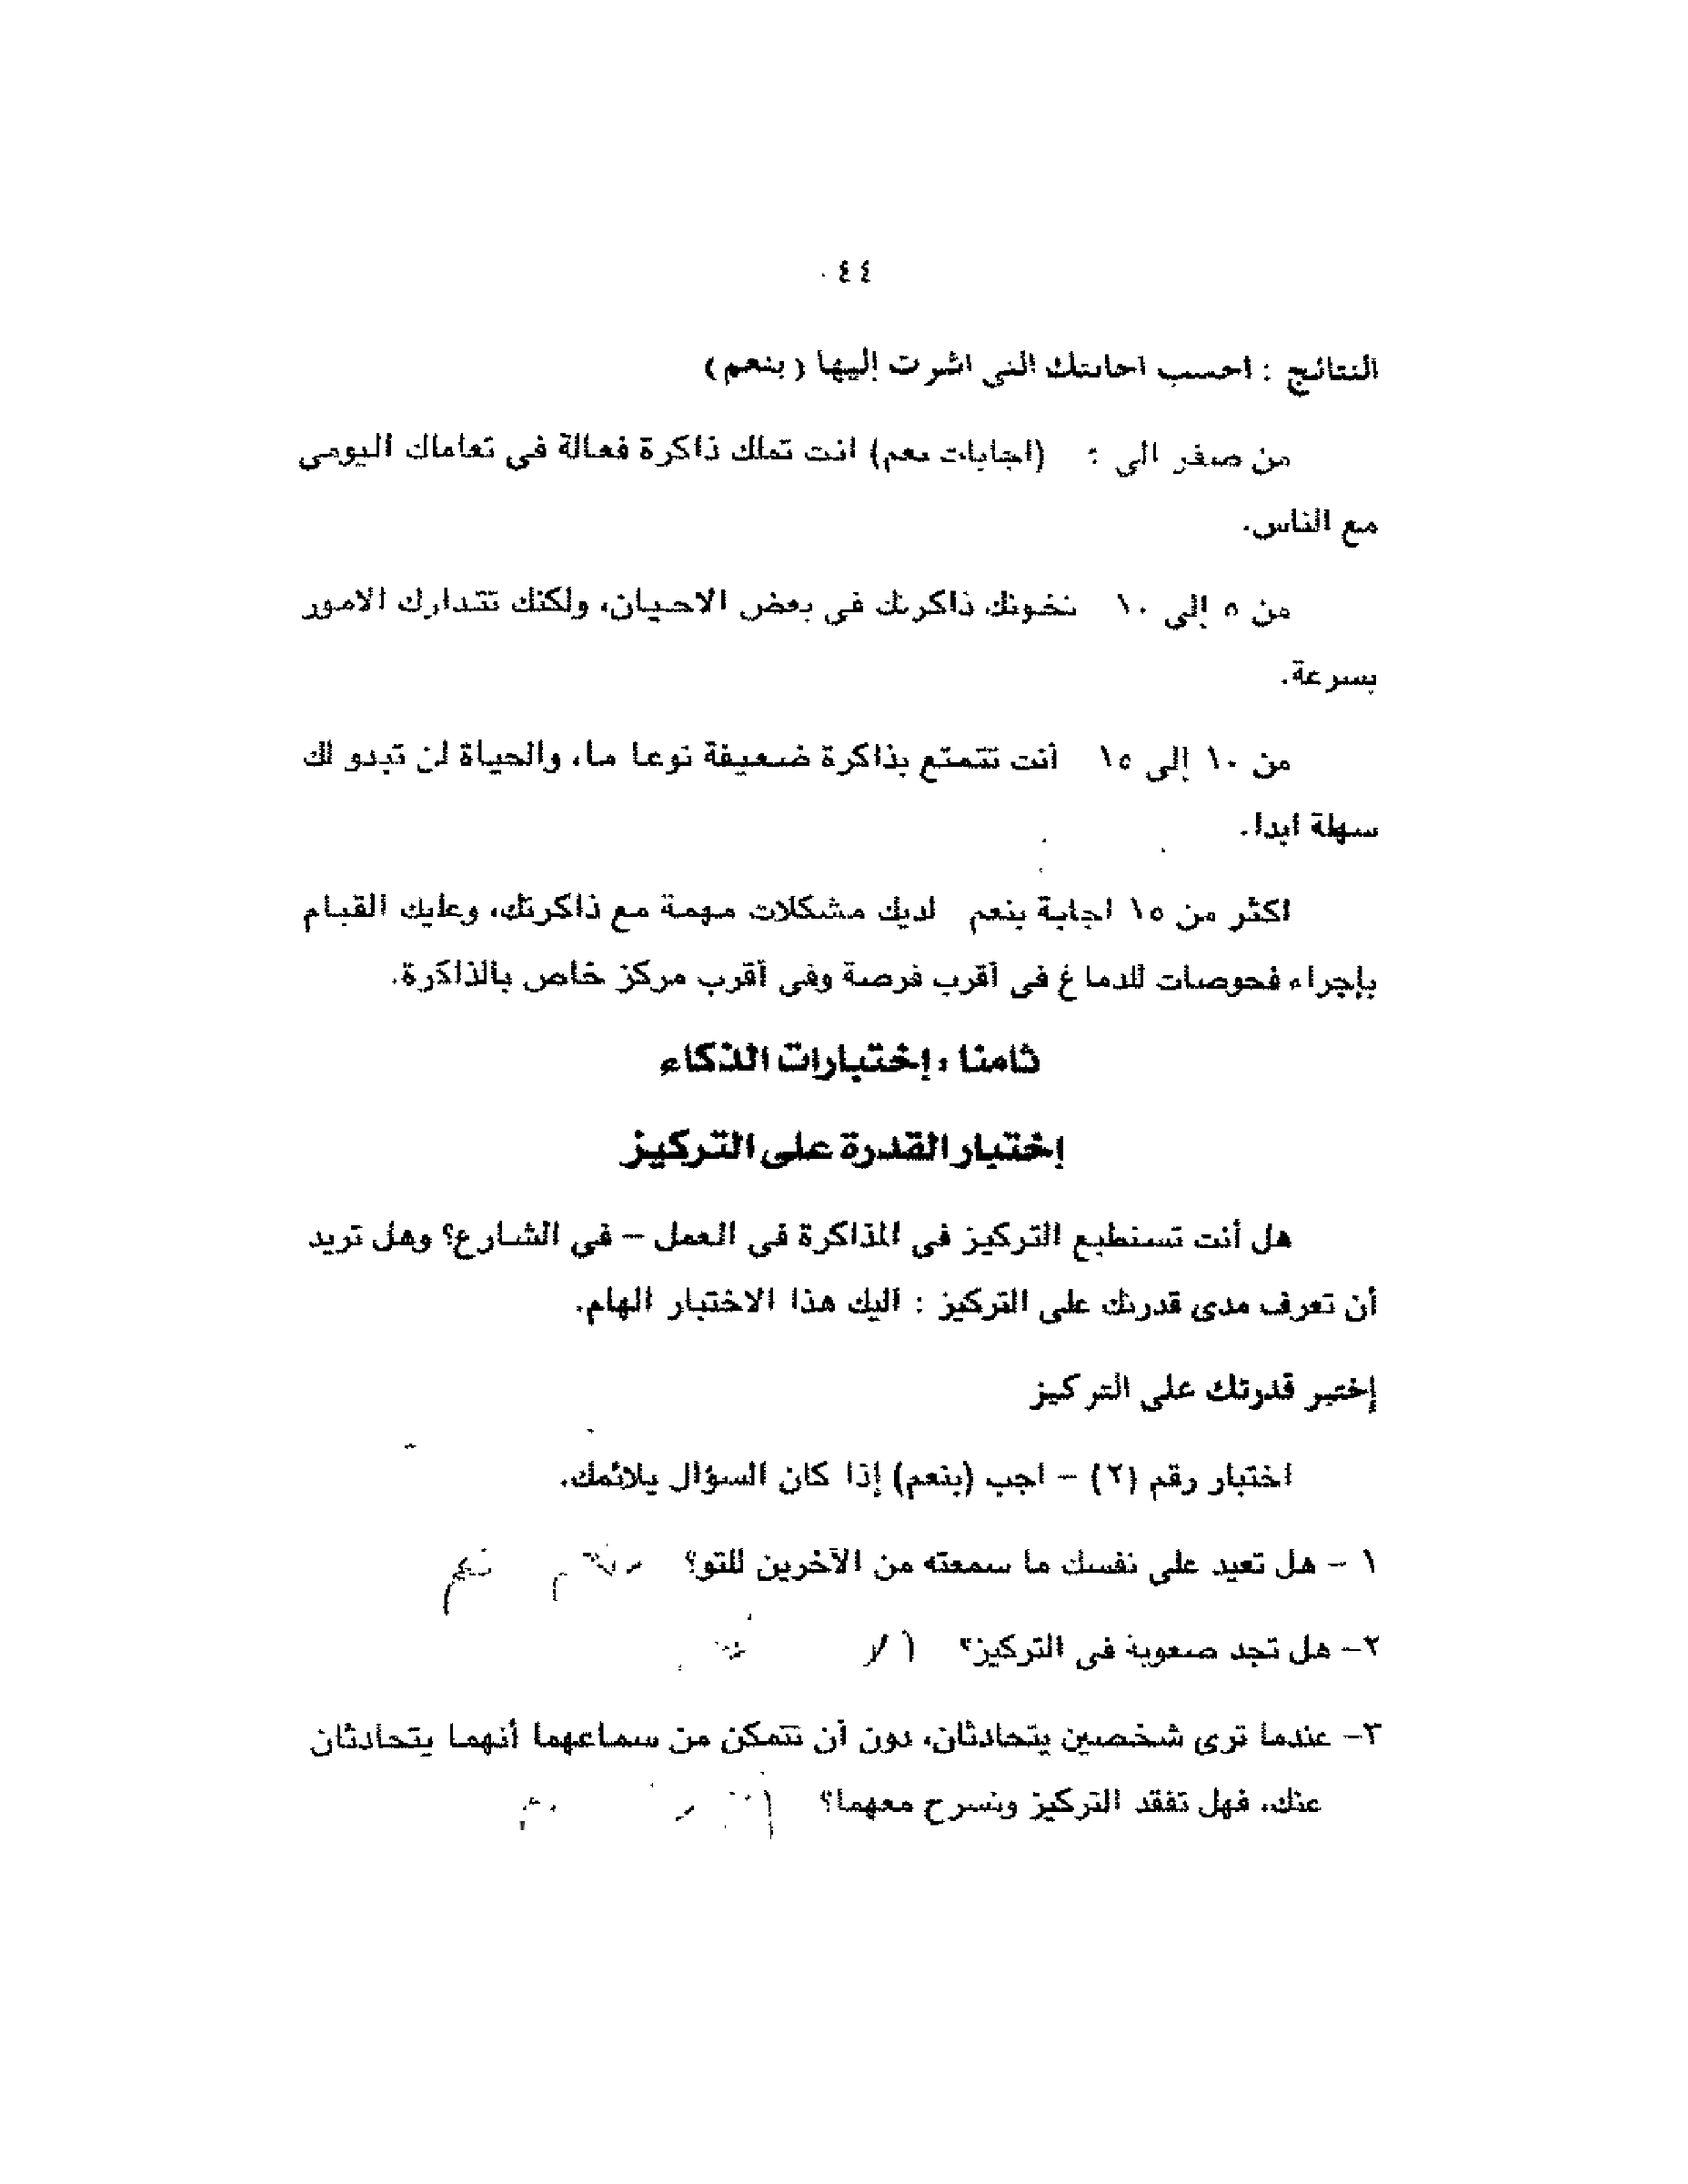 ٤٤
النتائج : احسب اجابتك التى اشرت إليها (بنعم)
من صفر الى : (اجابات نعم) انت تملك ذاكرة فعالة فى تعاملك اليومى
مع الناس.
من ٥ إلى ١٠ تخونك ذاكرتك فى بعض الاحيان، ولكنك تتدارك الامور
بسرعة.
من ١٠ إلى ١٥ أنت تتمتع بذاكرة ضعيفة نوعا ما، والحياة لن تبدو لك
سهلة ابدا.
اكثر من ١٥ اجابة بنعم لديك مشكلات مهمة مع ذاكرتك، وعليك القيام
بإجراء فحوصات للدماغ فى أقرب فرصة وفى أقرب مركز خاص بالذاكرة.
ثامنا : إختبارات الذكاء
إختبار القدرة على التركيز
هل أنت تستطيع التركيز فى المذاكرة فى العمل – فى الشارع؟ وهل تريد
أن تعرف مدى قدرتك على التركيز : اليك هذا الاختبار الهام.
إختبر قدرتك على التركيز
اختبار رقم (٢) – اجب (بنعم) إذا كان السؤال يلائمك.
١ – هل تعيد على نفسك ما سمعته من الآخرين للتو؟ نعم
٢– هل تجد صعوبة فى التركيز؟
٣– عندما ترى شخصين يتحادثان، دون أن تتمكن من سماعهما أنهما يتحادثان
عنك، فهل تفقد التركيز وتسرح معهما؟